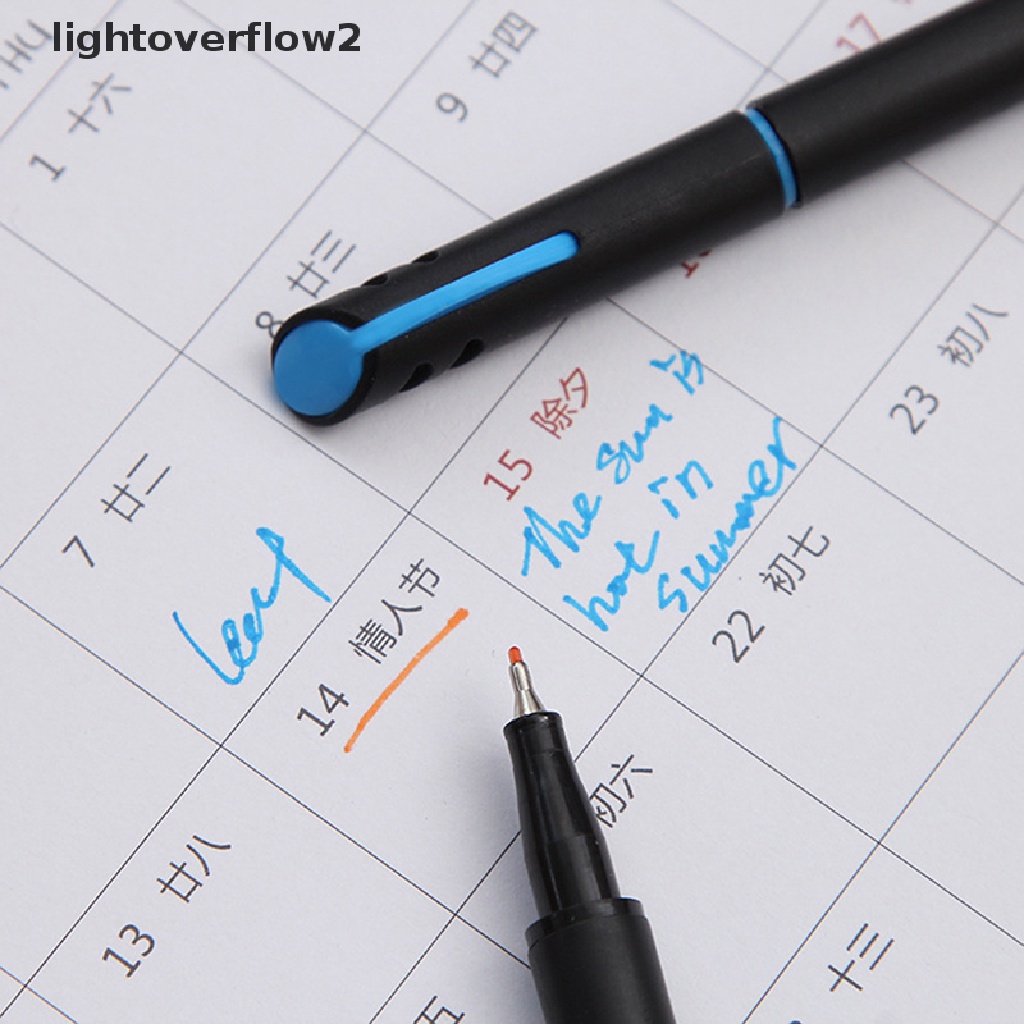 lightoverflow2
THU
1 十六
8 廿三
9 廿四
17
7 廿二
15 除夕
The sun is
hot in
summer
23 初八
14 情人节
22 初七
初六
13 廿八
十三
五